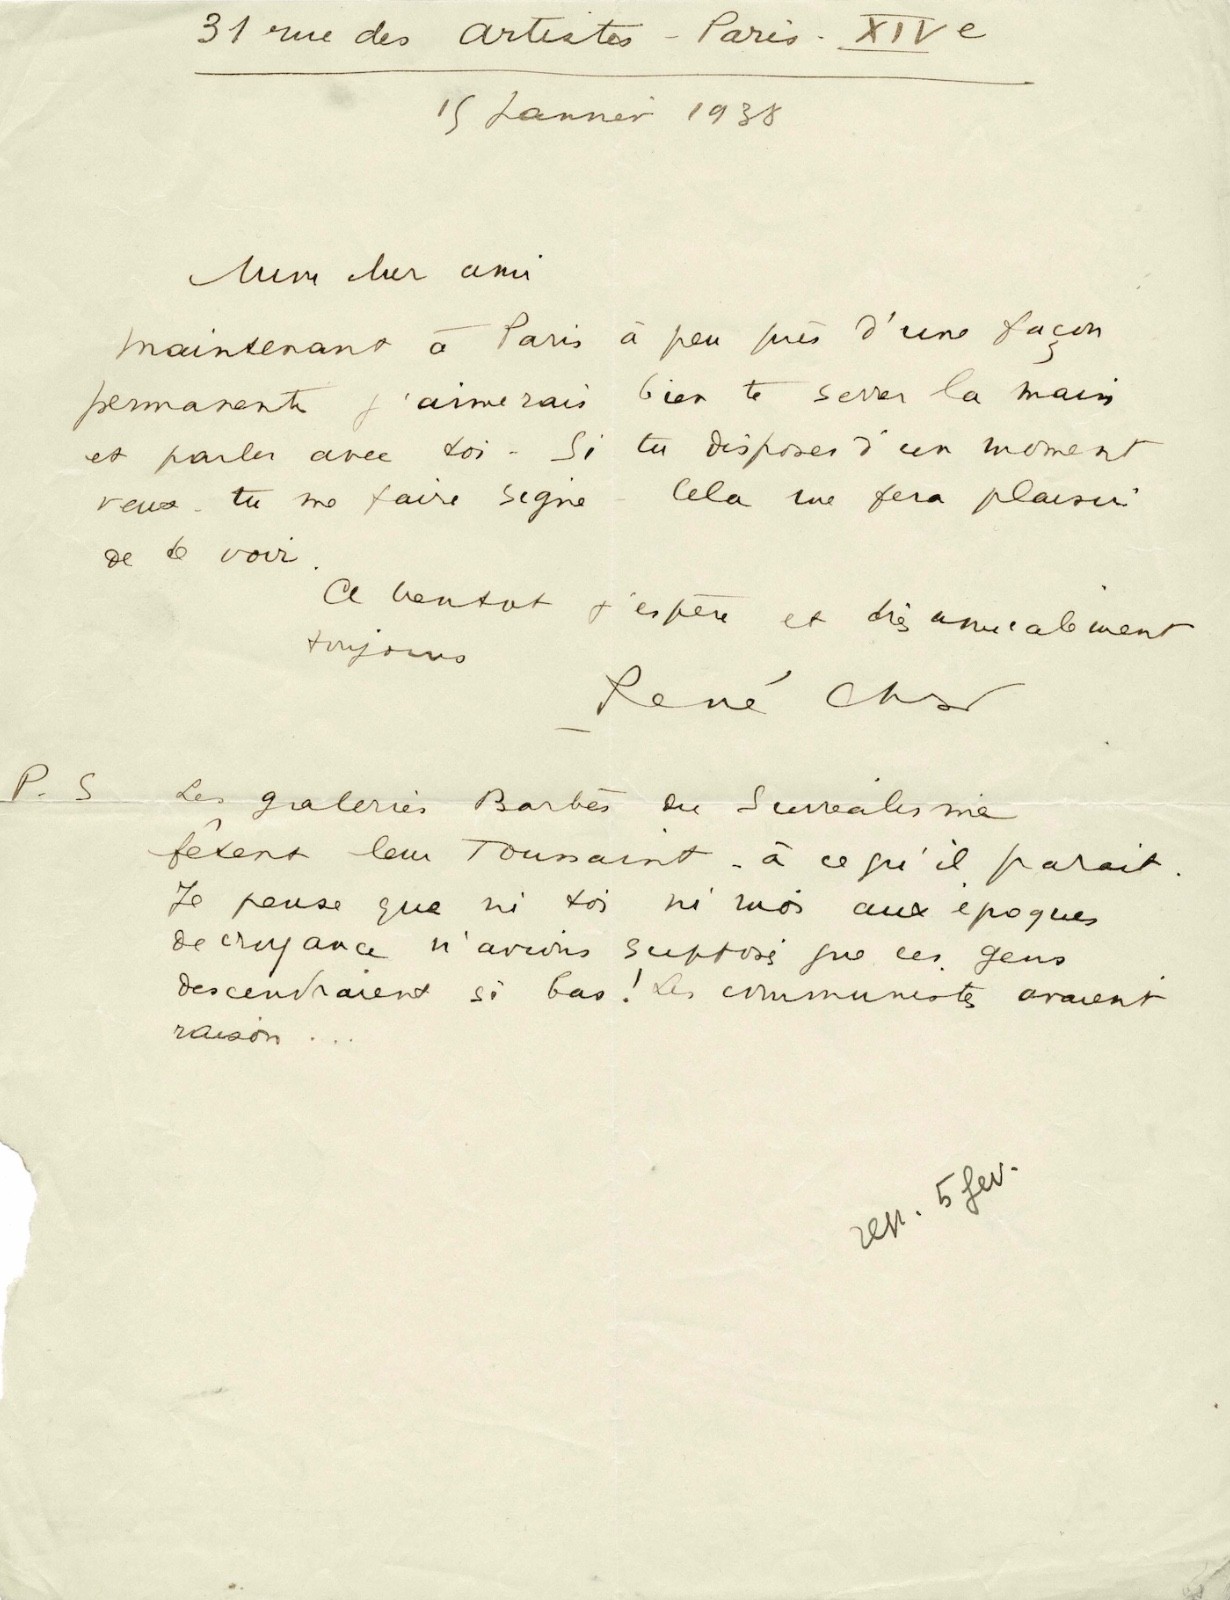 31 rue des Artistes - Paris - XIVe
15 Janvier 1938
Mon cher ami
maintenant à Paris à peu près d'une façon
permanente j'aimerais bien te serrer la main
et parler avec toi - Si tu disposes d'un moment
veux-tu me faire signe - Cela me fera plaisir
de te voir.
A bientot j'espère et très amicalement
toujours
René Char
P. S Les galeries Barbès du Surréalisme
fêtent leur Toussaint - à ce qu'il parait.
Je pense que ni toi ni moi aux époques
de croyance n'avions supposé que ces gens
descendraient si bas ! Les communistes avaient
raison ...
rep. 5 fev.